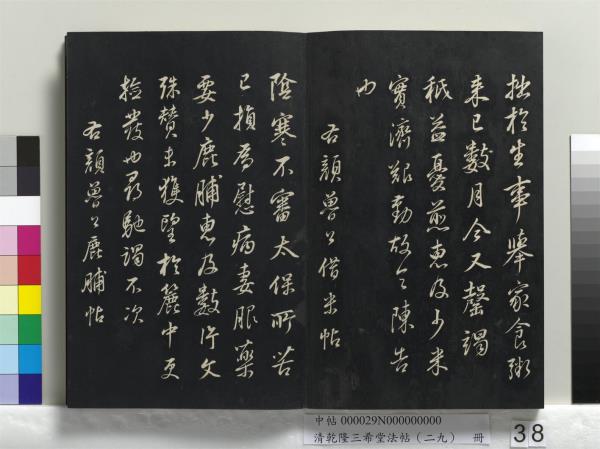 拙於生事舉家食粥
來已數月今又罄竭
秖益憂煎惠及少米
實濟艱勤故令陳告
也
右顏魯公借米帖
陰寒不審太保所苦
已損為慰病妻服藥
要少鹿脯惠及數片文
殊贊未獲望於簏中更
撿發也尋馳謁不次
右顏魯公鹿脯帖
中帖 000029N000000000
清乾隆三希堂法帖(二九) 冊
38